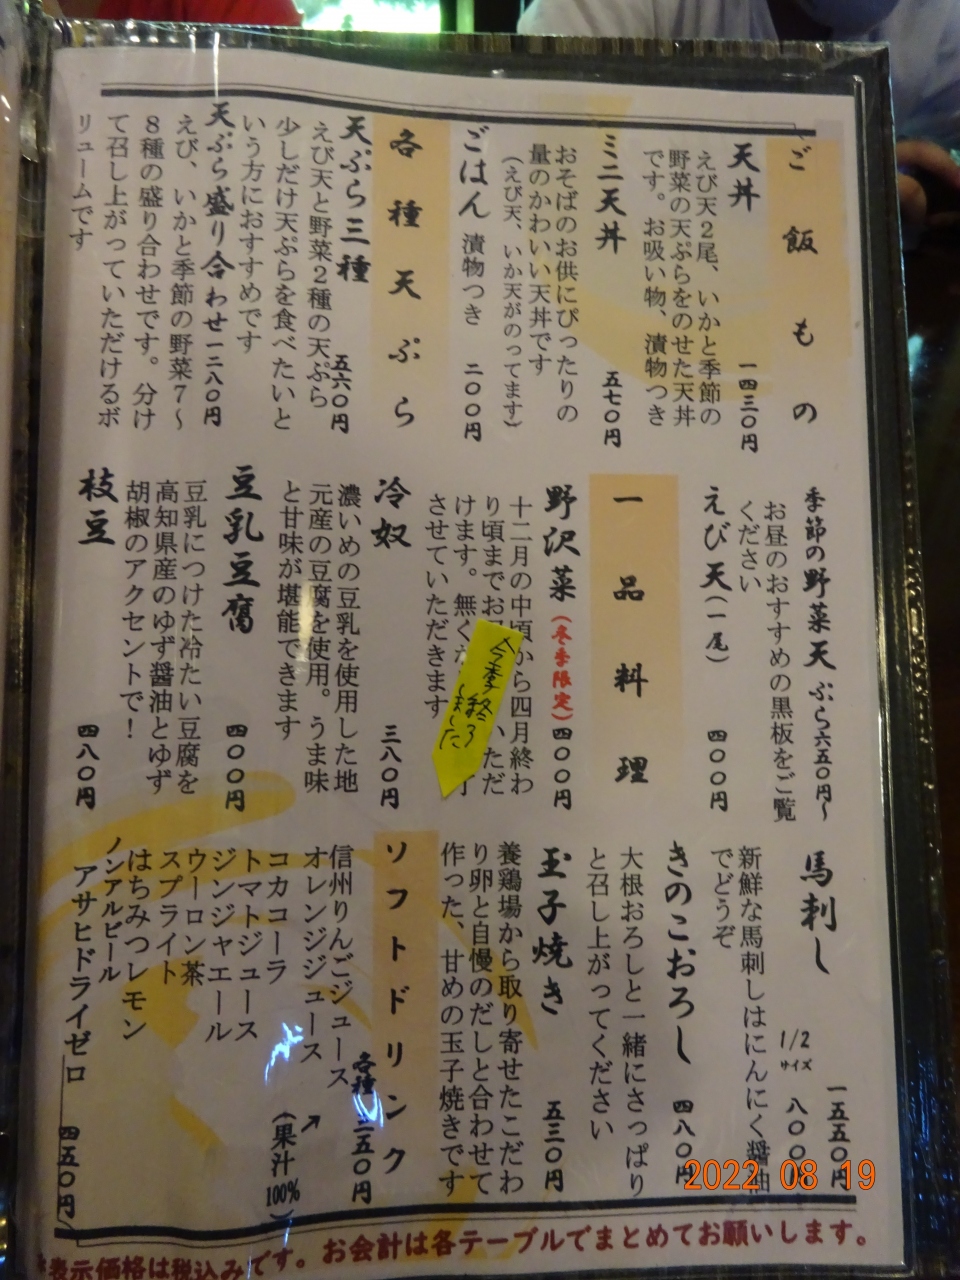 ご飯もの
天丼
一四三〇円
えび天2尾、いかと季節の
野菜の天ぷらをのせた天丼
です。お吸い物、漬物つき
ミニ天丼
五七〇円
おそばのお供にぴったりの
量のかわいい天丼です
(えび天、いか天がのってます)
ごはん 漬物つき 二〇〇円
各種天ぷら
天ぷら三種
五六〇円
えび天と野菜2種の天ぷら
少しだけ天ぷらを食べたいと
いう方におすすめです
天ぷら盛り合わせ一二八〇円
えび、いかと季節の野菜7〜
8種の盛り合わせです。分け
て召し上がっていただけるボ
リュームです
季節の野菜天ぷら六五〇円〜
お昼のおすすめの黒板をご覧
ください
えび天(一尾) 四〇〇円
一品料理
野沢菜(冬季限定)四〇〇円
十二月の中頃から四月終わ
り頃までお いただ
けます。無く 了
させていただきます
今季終了
しました
冷奴 三八〇円
濃いめの豆乳を使用した地
元産の豆腐を使用。うま味
と甘味が堪能できます
豆乳豆腐 四〇〇円
豆乳につけた冷たい豆腐を
高知県産のゆず醤油とゆず
胡椒のアクセントで!
枝豆 四八〇円
馬刺し 一五五〇円
1/2サイズ 八〇〇
新鮮な馬刺しはにんにく醤油
でどうぞ
きのこおろし 四八〇円
大根おろしと一緒にさっぱり
と召し上がってください
玉子焼き 五三〇円
養鶏場から取り寄せたこだわ
り卵と自慢のだしと合わせて
作った、甘めの玉子焼きです
ソフトドリンク
各種 五〇円
信州りんごジュース
オレンジジュース
↗(果汁100%)
コカコーラ
トマトジュース
ジンジャエール
ウーロン茶
スプライト
はちみつレモン
ノンアルビール
アサヒドライゼロ 四五〇円
表示価格は税込みです。お会計は各テーブルでまとめてお願いします。
2022 08 19